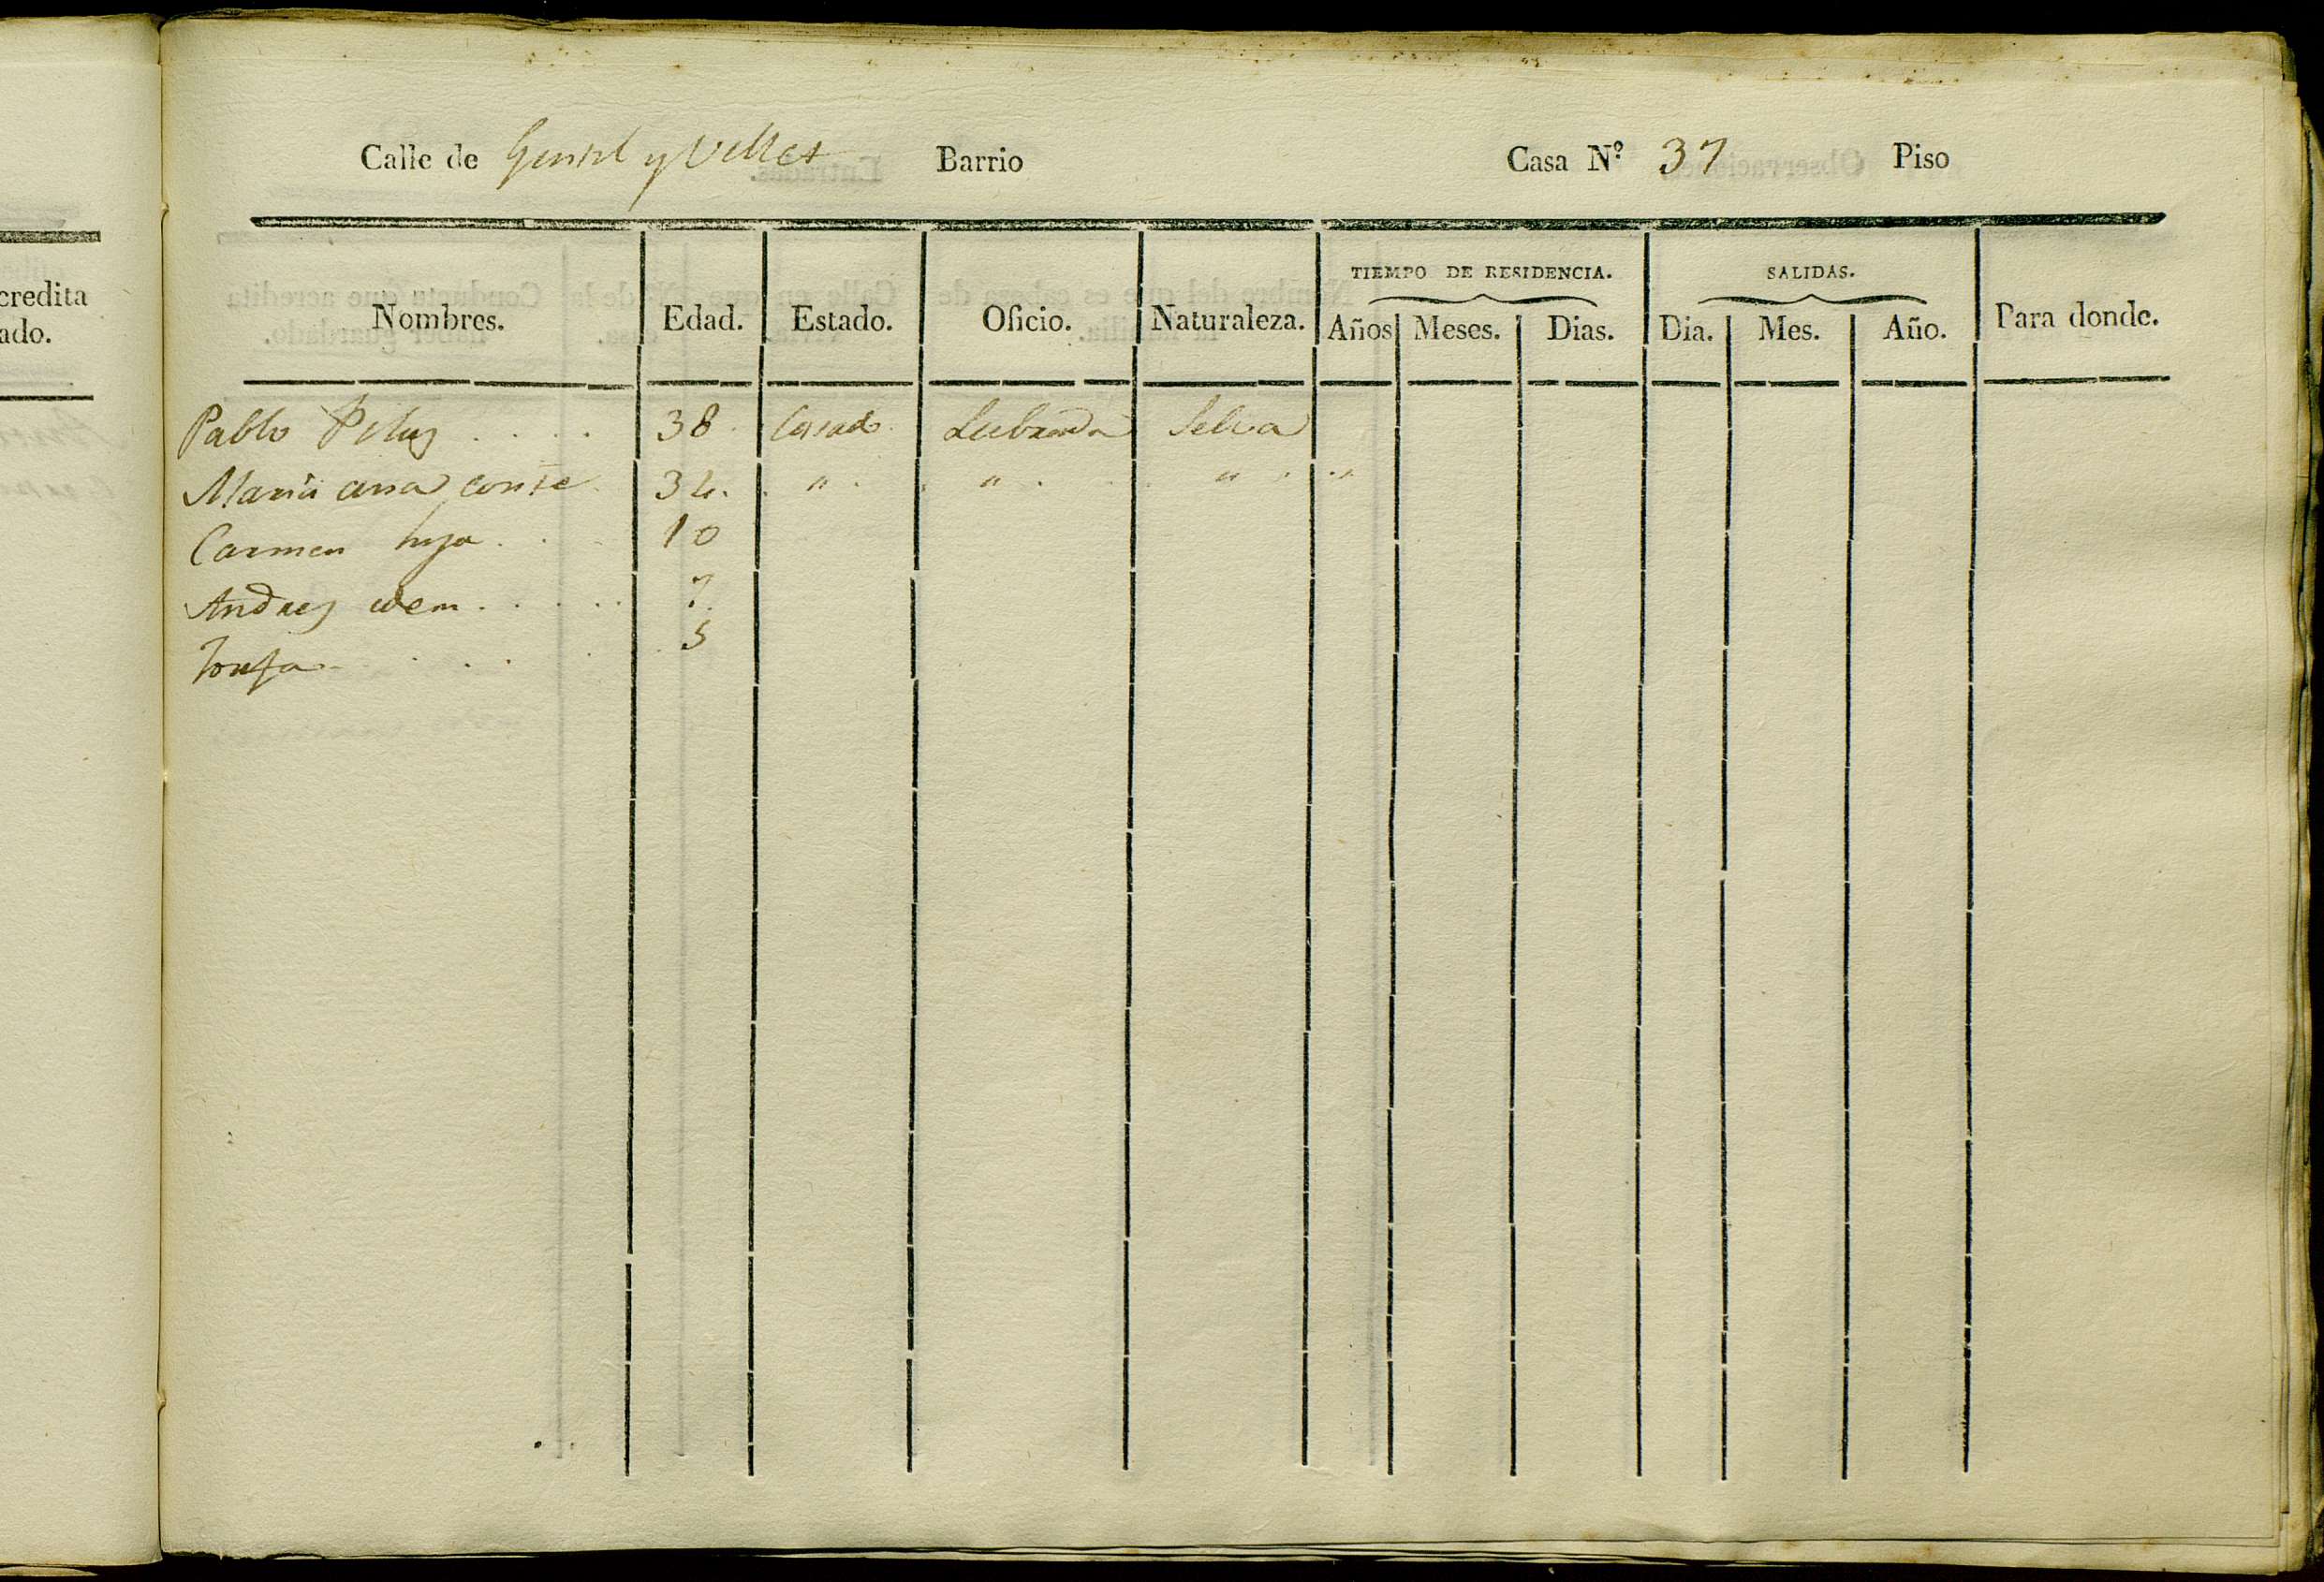 credita
ado.
Calle de y Barrio Casa Nº 37 Piso
TIEMPO DE RESIDENCIA. SALIDAS.
Nombres. Edad. Estado. Oficio. Naturaleza. Años Meses. Dias. Dia. Mes. Año. Para donde.
Pablo . . . . 38 Casado Selva
Maria ana 34. " " " "
Carmen hija . . 10
Andres idem . . . . . 7.
Josefa . . . . . 5